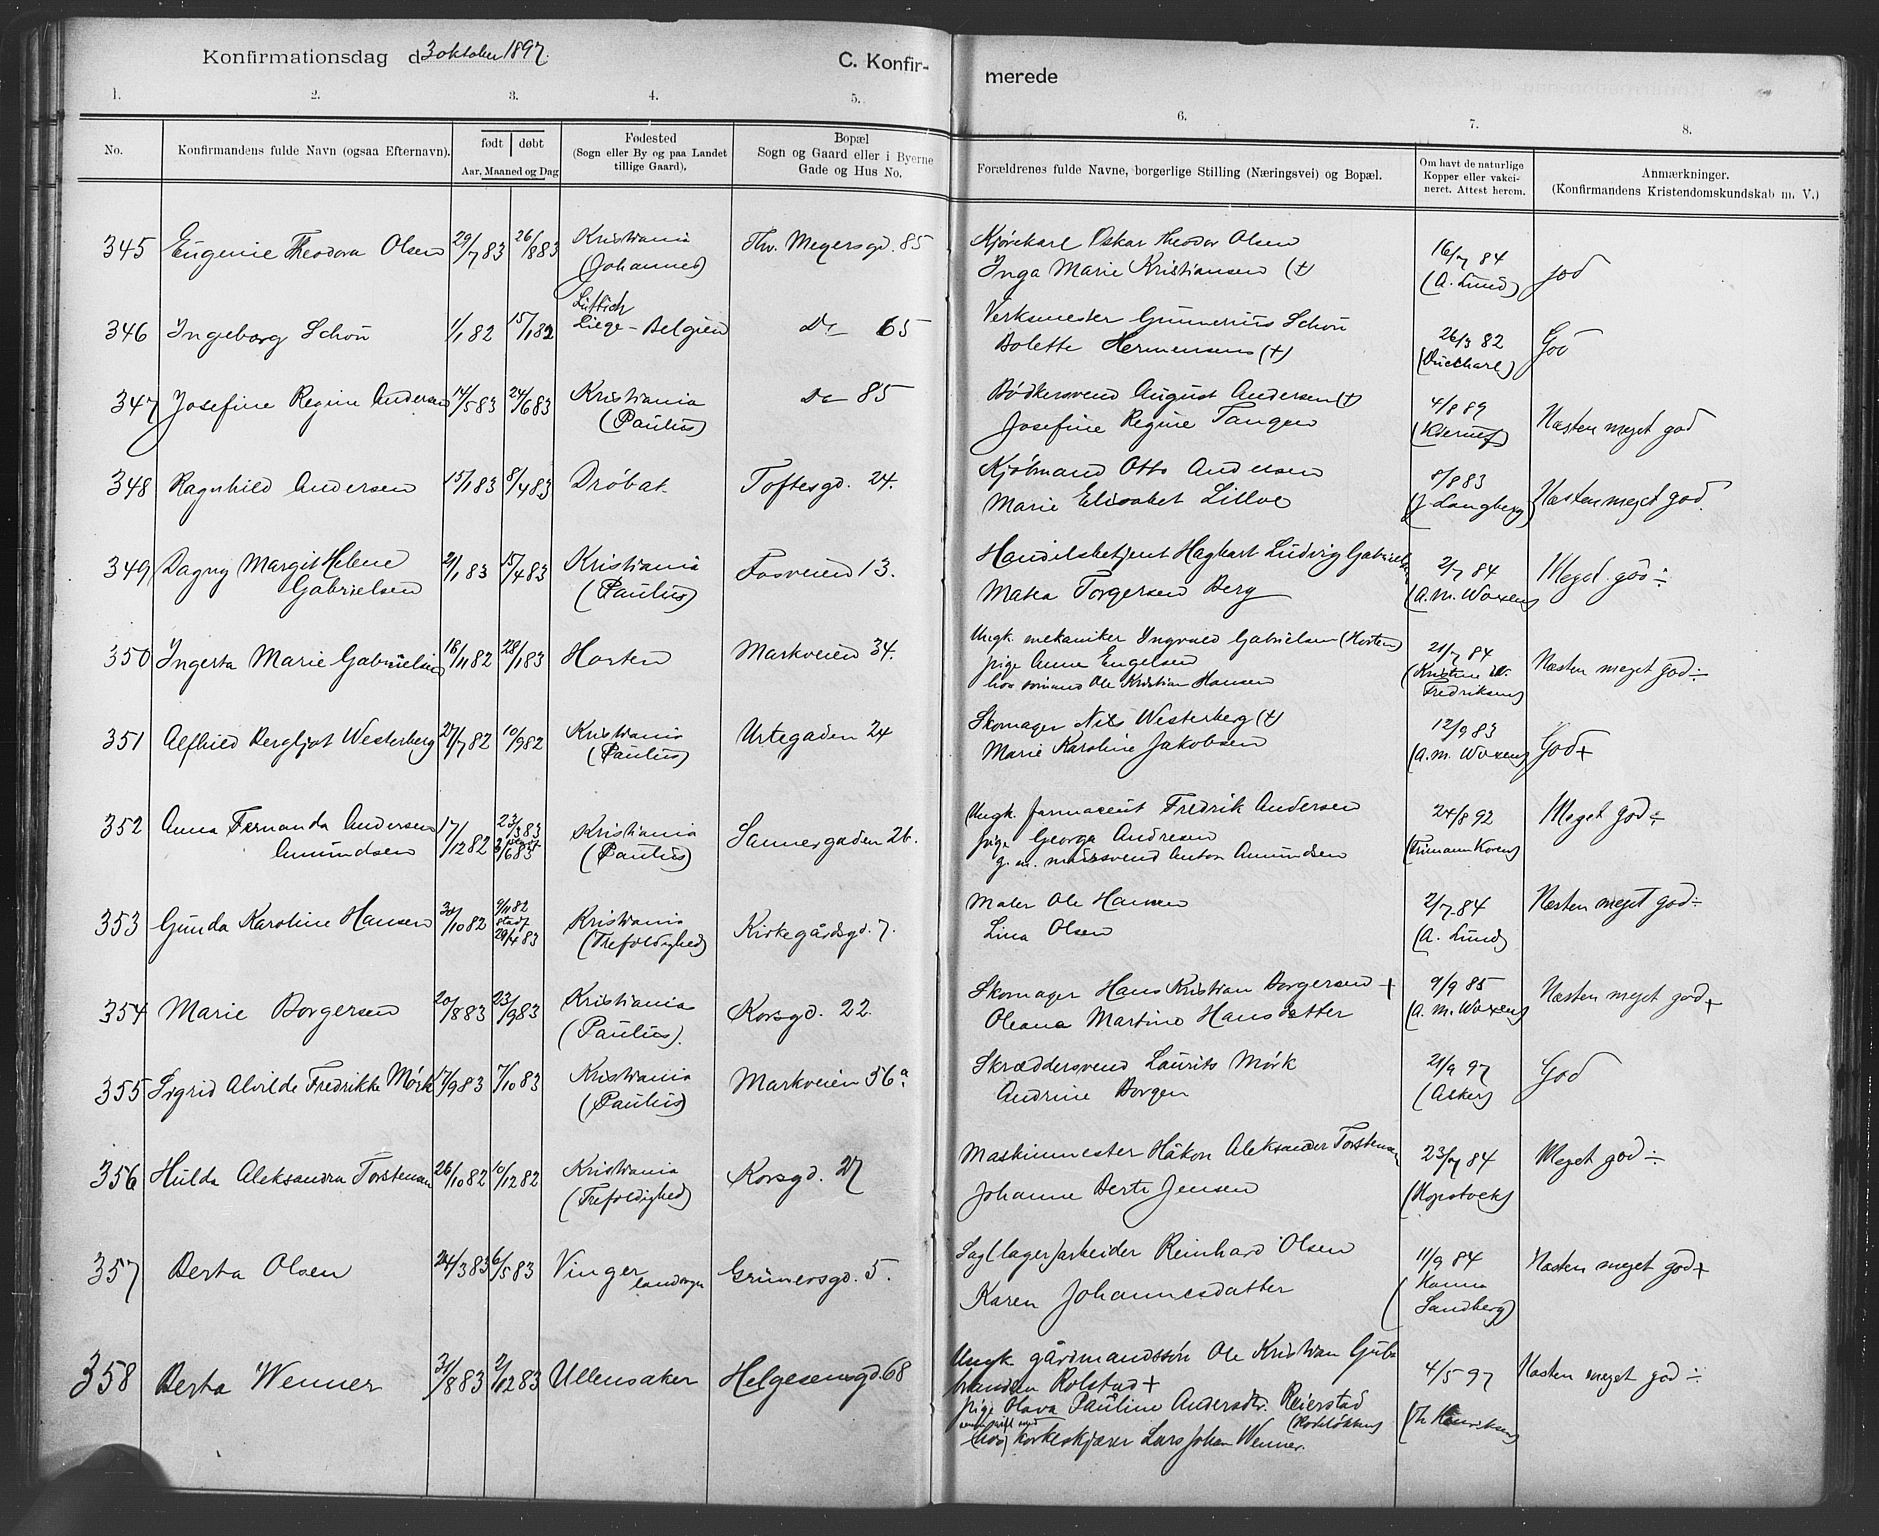 Konfirmationsdag d 3 oktober 1897. C. Konfir- merede
1. 2. 3. 4. 5. 6. 7. 8.
No. Konfirmandens fulde Navn (ogsaa Efternavn). født døbt Aar, Maaned og Dag
Fødested (Sogn eller By og paa Landet tillige Gaard).
Bopæl Sogn og Gaard eller i Byerne Gade og Hus No.
Forældrenes fulde Navne, borgerlige Stilling (Næringsvei) og Bopæl.
Om havt de naturlige Kopper eller vakcineret. Attest herom.
Anmærkninger. (Konfirmandens Kristendomskundskab m. V.)
345 Eugenie Theodora Olsen 29/7 83 26/8 83 Kristiania (Johannes) Thv. Meyersgd. 85
Kjørekarl Oskar Theodor Olsen
Inga Marie Kristiansen (+)
16/7 84 (A. Lund) god
346 Ingeborg Schou 1/1 82 15/1 82 Lüttich Liege - Belgien Do 65
Verksmester Gunnerius Schou
Bolette Hermensens (+)
26/3 82 God
347 Josefine Regine Andersen 14/5 83 24/6 83 Kristiania (Paulus) Do 85
Bødkersvend August Andersen (+)
Josefine Regine Tangen
4/8 89 (Kierulf) Næsten meget god
348 Ragnhild Andersen 15/1 83 8/4 83 Drøbak Toftesgd. 24.
Kjøbmand Otto Andersen
Marie Elisabet Lilloe
8/8 83 (J Langberg) Næsten meget god.
349 Dagny Margit Helene Gabrielsen 2/1 83 15/4 83 Kristiania (Paulus) Fosveien 13.
Handelsbetjent Hagbart Ludvig Gabrielsen
Matea Torgersen Berg
2/7 84 (A. M. Woxen) Meget god ÷
350 Ingerta Marie Gabrielsen 16/11 82 28/1 83 Horten Markveien 34.
Ungk. mekaniker Yngvald Gabrielsen (Horten)
pige Anne Engelsen
hos sømand Ole Kristian Hansen
21/7 84 (Kristine Fredriksen) Næsten meget god ÷
351 Alfhild Bergljot Westerberg 27/7 82 10/9 82 Kristiania (Paulus) Urtegaden 24
Skomager Nils Westerberg (+)
Marie Karoline Jakobsen
12/9 83 (A. M. Woxen) God +
352 Anna Fernanda Andersen Amundsen 17/12 82 23/3 83 3/6 83 Kristiania (Paulus) Sannergaden 26.
Ungk. farmaceut Fredrik Andersen
pige Georga Andresen
g. m. mursvend Anton Amundsen
24/8 92 Meget god ÷
353 Gunda Karoline Hansen 30/10 82 9/11 82 stadf. 29/4 83 Kristiania (Trefoldighed) Kirkegårdsgd. 7.
Maler Ole Hansen
Lina Olsen
2/7 84 (A. Lund) Næsten meget god ÷
354 Marie Borgersen 20/8 83 23/9 83 Kristiania (Paulus). Korsgd. 22.
Skomager Hans Kristian Borgersen +
Oleana Martine Hansdatter
9/9 85 (A. M. Woxen) Næsten meget god +
355 Sigrid Alvilde Fredrikke Mørk 17/9 83 7/10 83 Kristiania (Paulus) Markveien 56 a.
Skræddersvend Laurits Mørk
Andrine Borgen
21/9 97 (Aker) God
356 Hulda Aleksandra Torstensen 26/10 82 10/12 82 Kristiania (Trefoldighed) Korsgd. 27
Maskinmester Håkon Aleksander Torstensen
Johanne Berte Jensen
23/7 84 (Kopstock) Meget god ÷
357 Berta Olsen 24/3 83 6/5 83 Vinger landsogn Grünersgd. 5.
Sag(lager)arbeider Reinhard Olsen
Karen Johannesdatter
11/9 84 (Hanna Sandberg) Næsten meget god +
358 Berta Wenner 31/8 83 2/12 83 Ullensaker Helgesensgd. 68
Ungk gårdmandssøn Ole Kristian Gulbrandsen Rolstad +
pige Olava Pauline Andersdtr. Reierstad
(hos) korkeskjærer Lars Johan Wenner. (Rodeløkken)
4/5 97 (Th Henriksen) Næsten meget god ÷